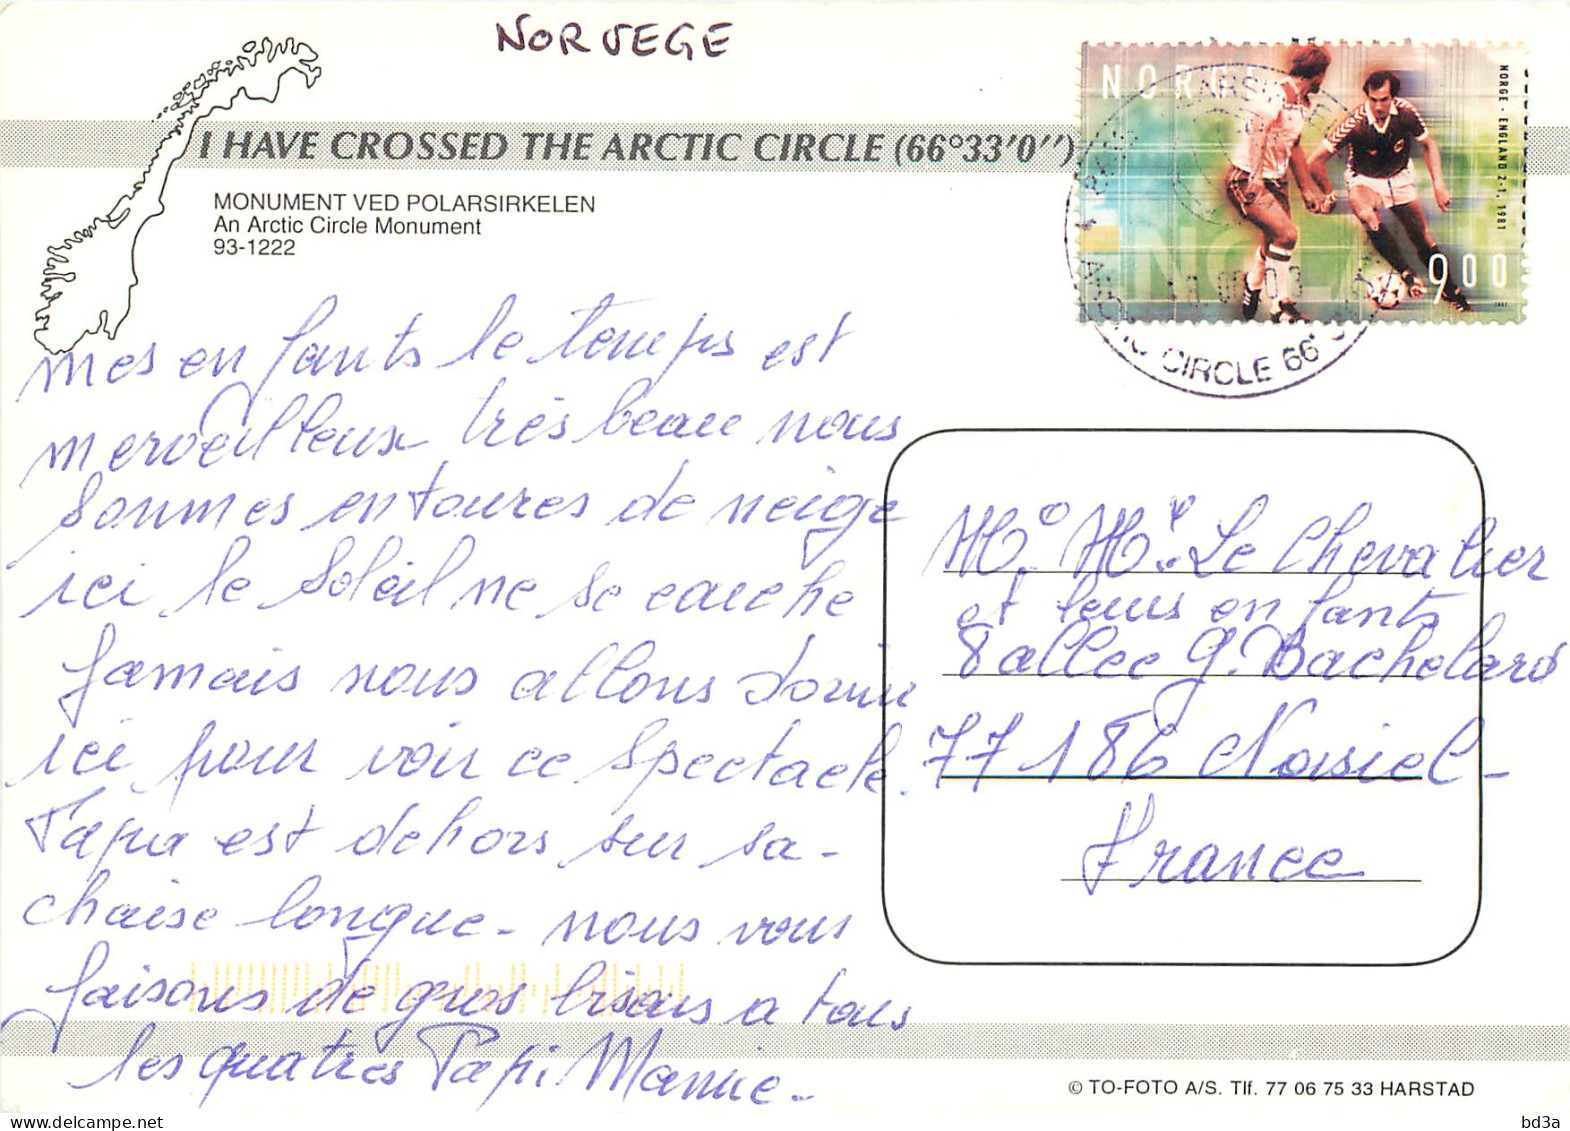 NORVEGE
I HAVE CROSSED THE ARCTIC CIRCLE (66°33'0'')
MONUMENT VED POLARSIRKELEN
An Arctic Circle Monument
93-1222
NORGE
NORGE - ENGLAND 2-1, 1981
9.00
ARCTIC CIRCLE 66°
mes enfants le temps est
merveilleux très beau nous
sommes entoures de neige
ici le soleil ne se couche
jamais nous allons dormir
ici pour voir ce spectacle.
Papa est dehors sur sa
chaise longue - nous vous
faisons de gros bisous a tous
les quatres Papi Mamie -
Mr Me Le Chevalier
et leurs enfants
8 allee G. Bachelard
77186 Noisiel -
France
© TO-FOTO A/S. Tlf. 77 06 75 33 HARSTAD
bd3a